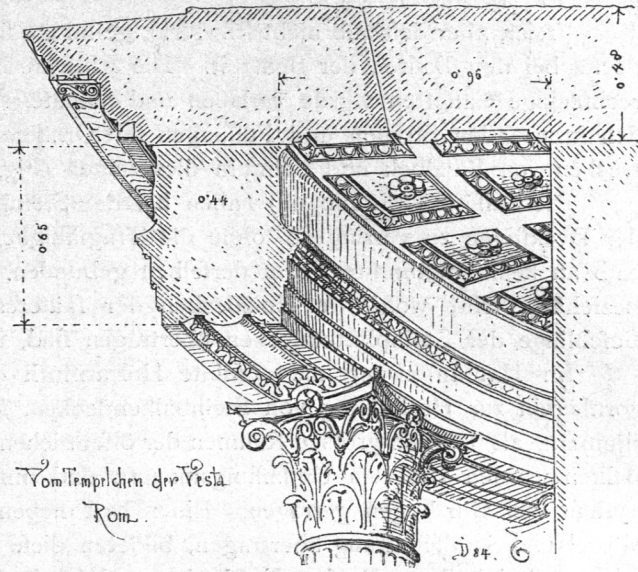 0·96
0·48
0·44
0·65
Vom Tempelchen der Vesta
Rom.
D 84.